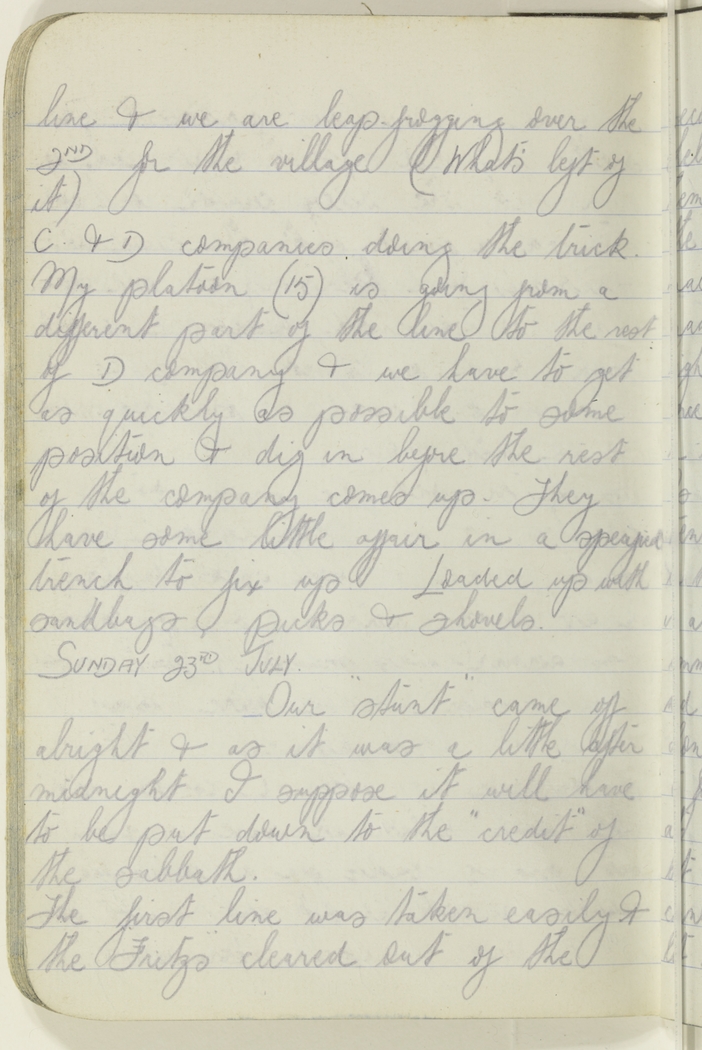 line & we are leap-frogging over the
2ND for the village (What's left of
it)
C. & D companies doing the trick.
My platoon (15) is going from a
different part of the line to the rest
of D company & we have to get
as quickly as possible to some
position & dig in before the rest
of the company comes up. They
have some little affair in a
trench to fix up. Loaded up with
sandbags, picks & shovels.
SUNDAY 23RD JULY.
Our "stunt" came off
alright & as it was a little after
midnight I suppose it will have
to be put down to the "credit" of
the sabbath.
The first line was taken easily &
the Fritzs cleared out of the